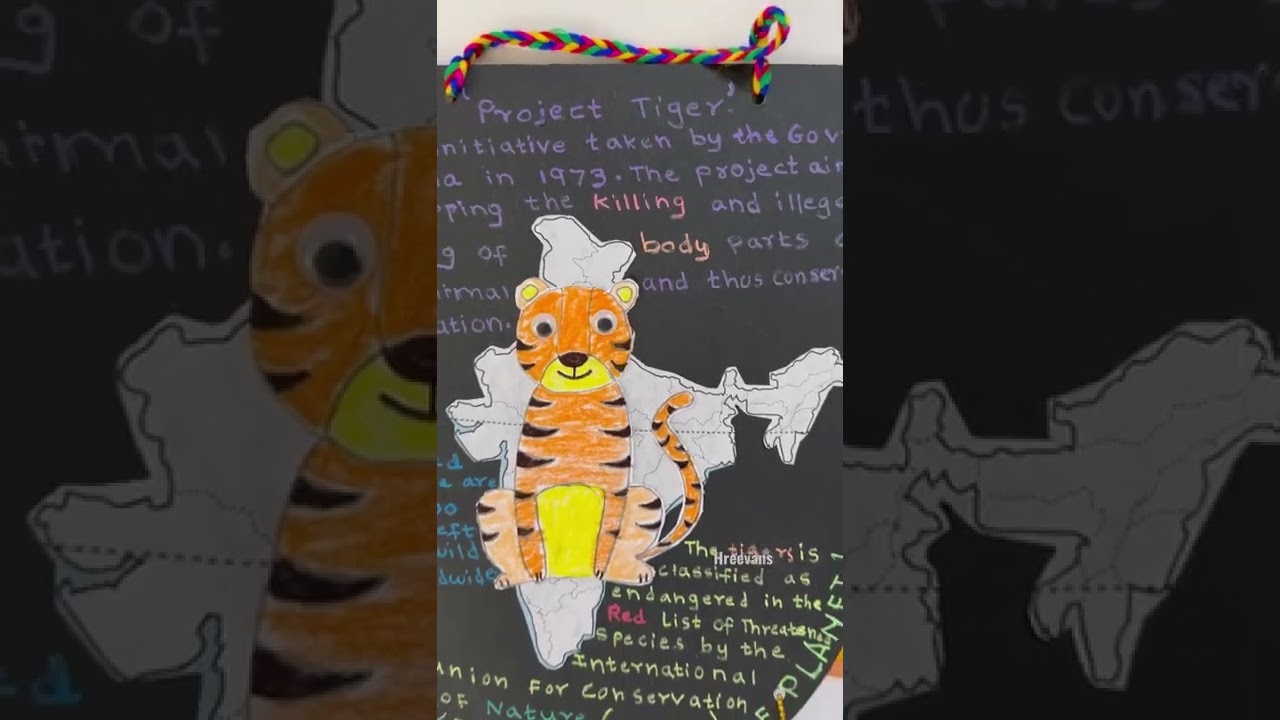 'Project Tiger'
nitiative taken by the Gov
a in 1973. The project aim
ping the killing and illega
g of body parts
rmal and thus conser
ation.
d
e are
oo
eft
wild
dwide
The tigers is
Hreevans
classified as
endangered in the
Red List of Threatened
Species by the
International
nion For Conservation
of Nature (
PLANET